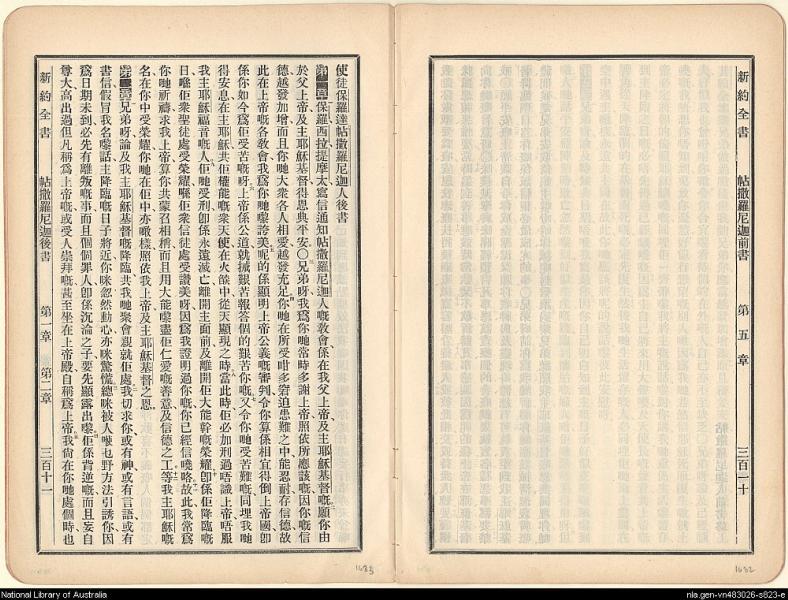 新約全書　帖撒羅尼迦前書　第五章　三百一十
使徒保羅達帖撒羅尼迦人後書
第一章 保羅西拉提摩太寫信通知帖撒羅尼迦人嘅教會係在我父上帝及主耶穌基督嘅願你由
於父上帝及主耶穌基督得恩典平安〇兄弟呀我爲你哋常時多謝上帝照依所應該嘅因你嘅信
德越發加增而且你哋大衆各人相愛越發充足你哋在所受咁多窘迫患難之中能忍耐存信德故
此在上帝嘅各教會我爲你哋嚟誇美呢的係顯明上帝公義嘅審判令你算係相宜得倒上帝國卽
係你如今爲佢受苦嘅呀上帝係公道就摵艱苦報答個的艱苦你嘅又令你哋受苦難嘅同埋我哋
得安息在主耶穌共佢權能嘅衆天使在火𦦨中從天顯現之時當此時佢必加刑過唔識上帝唔服
我主耶穌福音嘅人佢哋受刑卽係永遠滅亡離開主面前及離開佢大能幹嘅榮耀卽係佢降臨嘅
日喺佢衆聖徒處受榮耀喺佢衆信徒處受讚美呀因爲我證明過你嘅你已經信嘵咯故此我常爲
你哋祈禱求我上帝算你共蒙召相稱而且用大能嚟盡佢仁愛嘅善意及信德之工等我主耶穌嘅
名在你中受榮耀你哋在佢中亦噉樣照依我上帝及主耶穌基督之恩
第二章 兄弟呀論及我主耶穌基督嘅降臨共我哋聚會親就佢處我切求你或有神或有言語或有
書信假冒我名嚟話主降臨嘅日子將近你咪忽然動心亦咪驚慌總咪被人嚟乜野方法引誘你因
爲日期未到必先有離叛嘅事而且個個罪人卽係沉淪之子要先顯露出嚟佢係背逆嘅而且妄自
尊大高出過但凡稱爲上帝嘅或受人崇拜嘅甚至坐在上帝殿自稱爲上帝我尙在你哋處個時也
新約全書　帖撒羅尼迦後書　第一章　第二章　三百十一
1683
1682
National Library of Australia
nla.gen-vn483026-s823-e